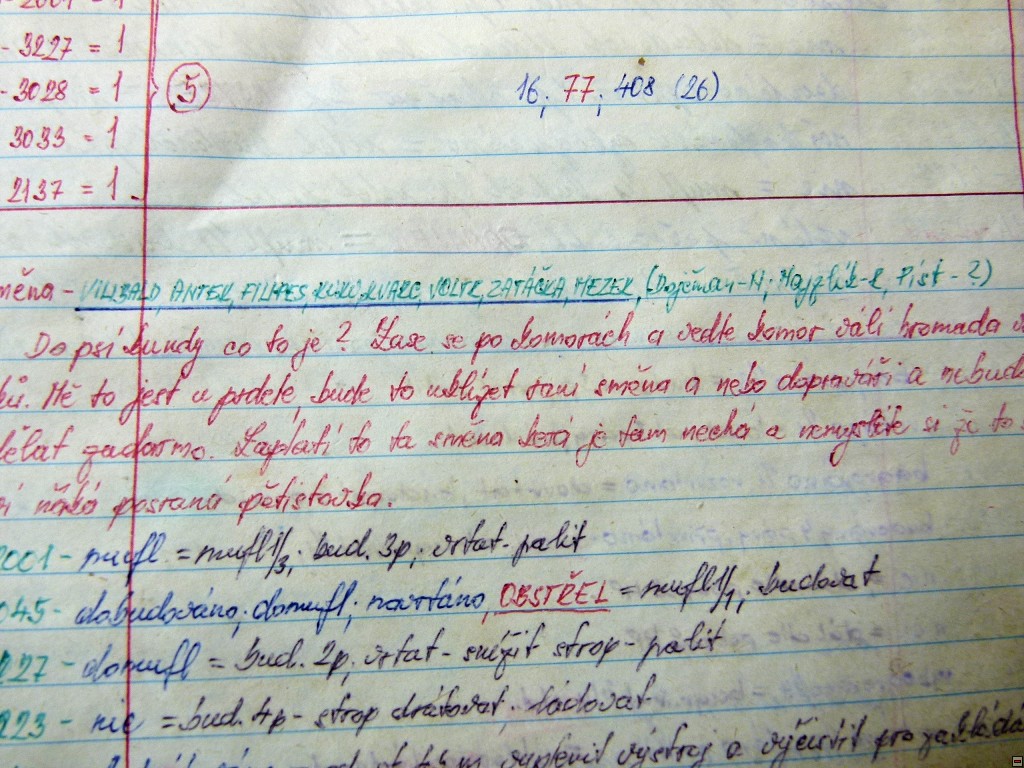 - 2001 = 1
- 3227 = 1
- 3028 = 1 } 5 16; 77; 408 (26)
3033 = 1
2137 = 1
měna - VILIBALD, ANTEK, FILIPES, KUKU, KVARC, VOLTR, ZATÁČKA, MEZEK, (Dojčman-N; Majzlík-R, Píst-?)
Do psí kundy co to je? Zase se po komorách a vedle komor válí hromada
ků. Mě to jest u prdele, bude to uklízet raní směna a nebo dopraváři a nebudou
ělat zadarmo. Zaplatí to ta směna která je tam nechá a nemyslete si že to
ňáká posraná pětistovka.
2001 - mufl = mufl 1/3; bud. 3p; vrtat - pálit
045 - dobudováno; domufl; navrtáno, OBSTŘEL = mufl 1/1; budovat
227 - domufl = bud. 2p; vrtat - snížit strop - pálit
223 - nic = bud. 4p - strop drátovat; ládovat
vyplenit výstroj a vyčistit pro zakládá